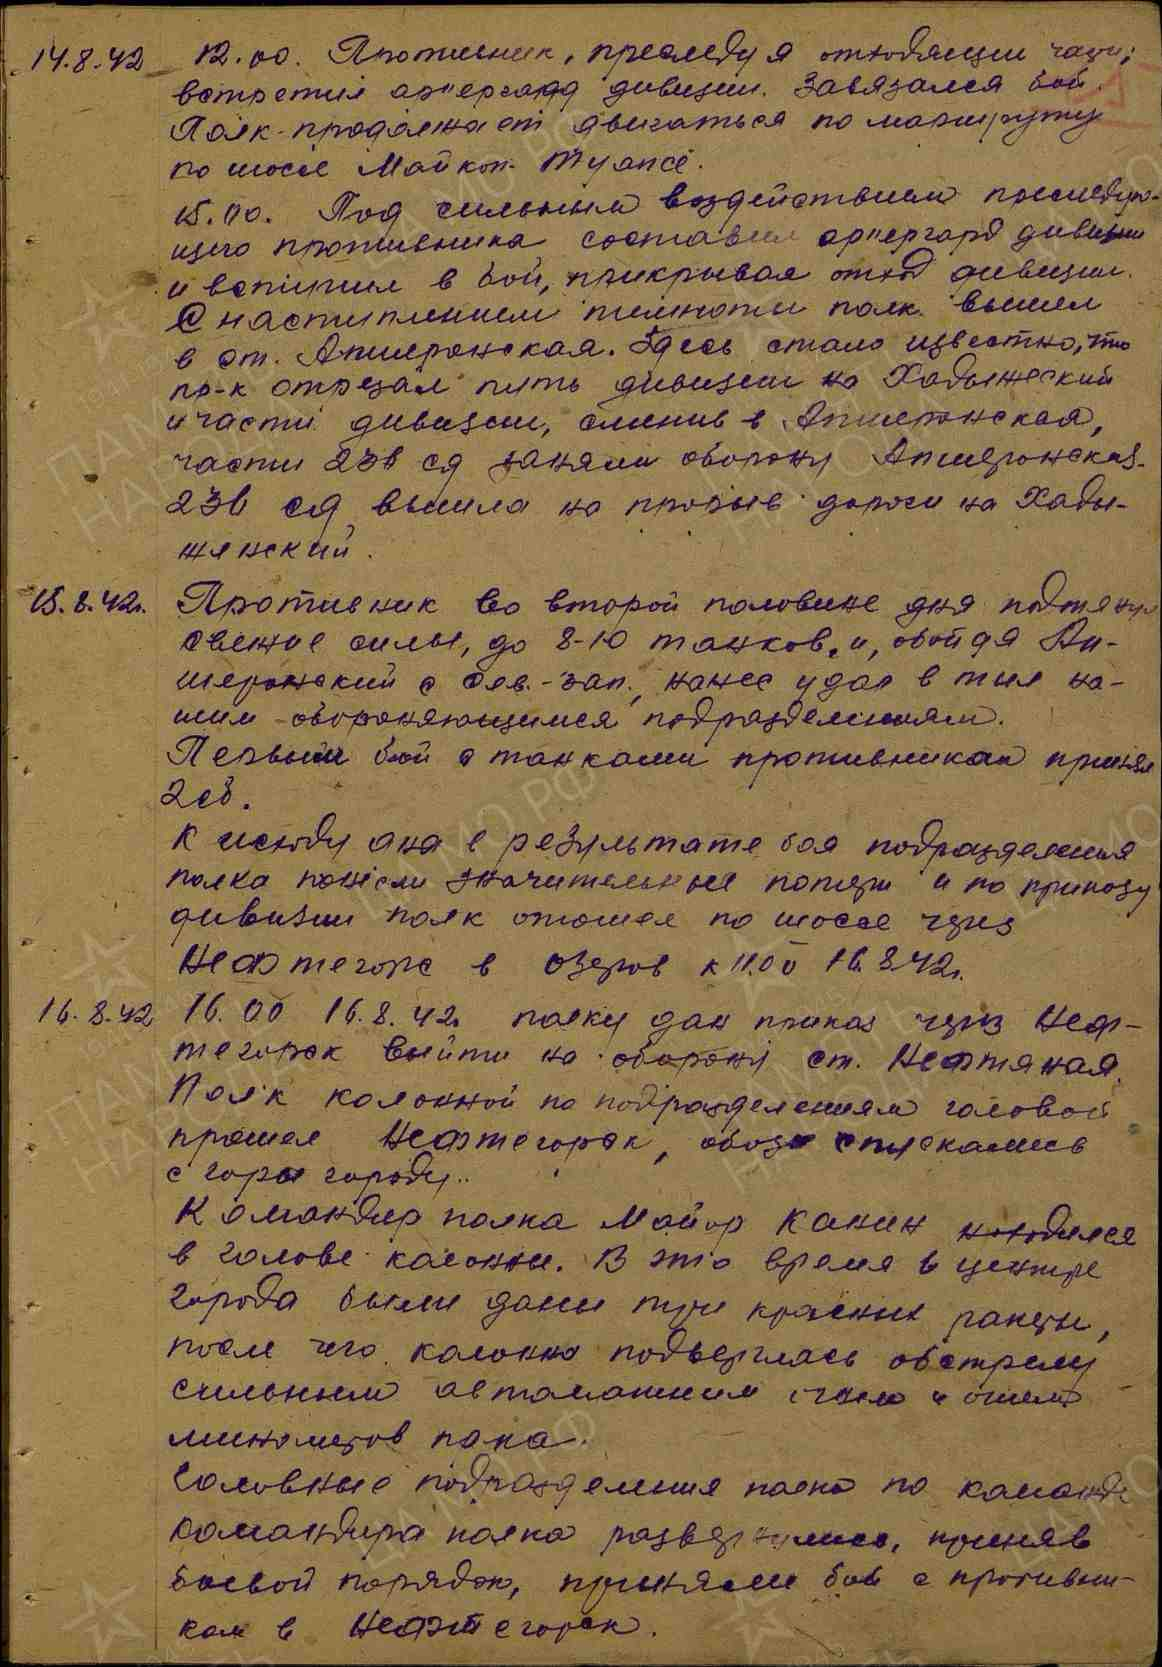 14.8.42 12.00. Противник, преследуя отходящии части,
встретил арьергард дивизии. Завязался бой.
Полк продолжает двигаться по маршруту
по шоссе Майкоп - Туапсе.
15.00. Под сильным воздействием преследую-
щего противника составил арьергард дивизии
и вступил в бой, прикрывая отход дивизии.
С наступлением темноты полк вышел
в ст. Апшеронская. Здесь стало известно, что
пр-к отрезал путь дивизии на Хадыженский
и части дивизии, сменив в Апшеронская,
части 236 сд заняли оборону Апшеронская.
236 сд вышла на прорыв дороги на Хады-
женский.
15.8.42г. Противник во второй половине дня подтянул
свежие силы, до 8-10 танков, и, обойдя Ап-
шеронский с сев.-зап., нанес удар в тыл на-
шим обороняющимся подразделениям.
Первый бой с танками противникам принял
2 сб.
К исходу дня в результате боя подразделения
полка понесли значительные потери и по приказу
дивизии полк отошел по шоссе через
Нефтегорс в озеров к 11.00 16.8.42г.
16.8.42 16.00 16.8.42г. полку дан приказ через Неф-
тегорск выйти на оборону ст. Нефтяная.
Полк колонной по подразделениям головой
прошел Нефтегорск, обозы спускались
с горы городу..
Командир полка Майор Канин находился
в голове колонны. В это время в центре
города были даны три красных ракеты,
после чего колонна подверглась обстрелу
сильным автоматным огнем и огнем
минометов полка.
Головные подразделения полка по команде
командира полка развернулись, приняв
боевой порядок, приняли бой с противни-
ком в Нефтегорск.
ПАМО РФ